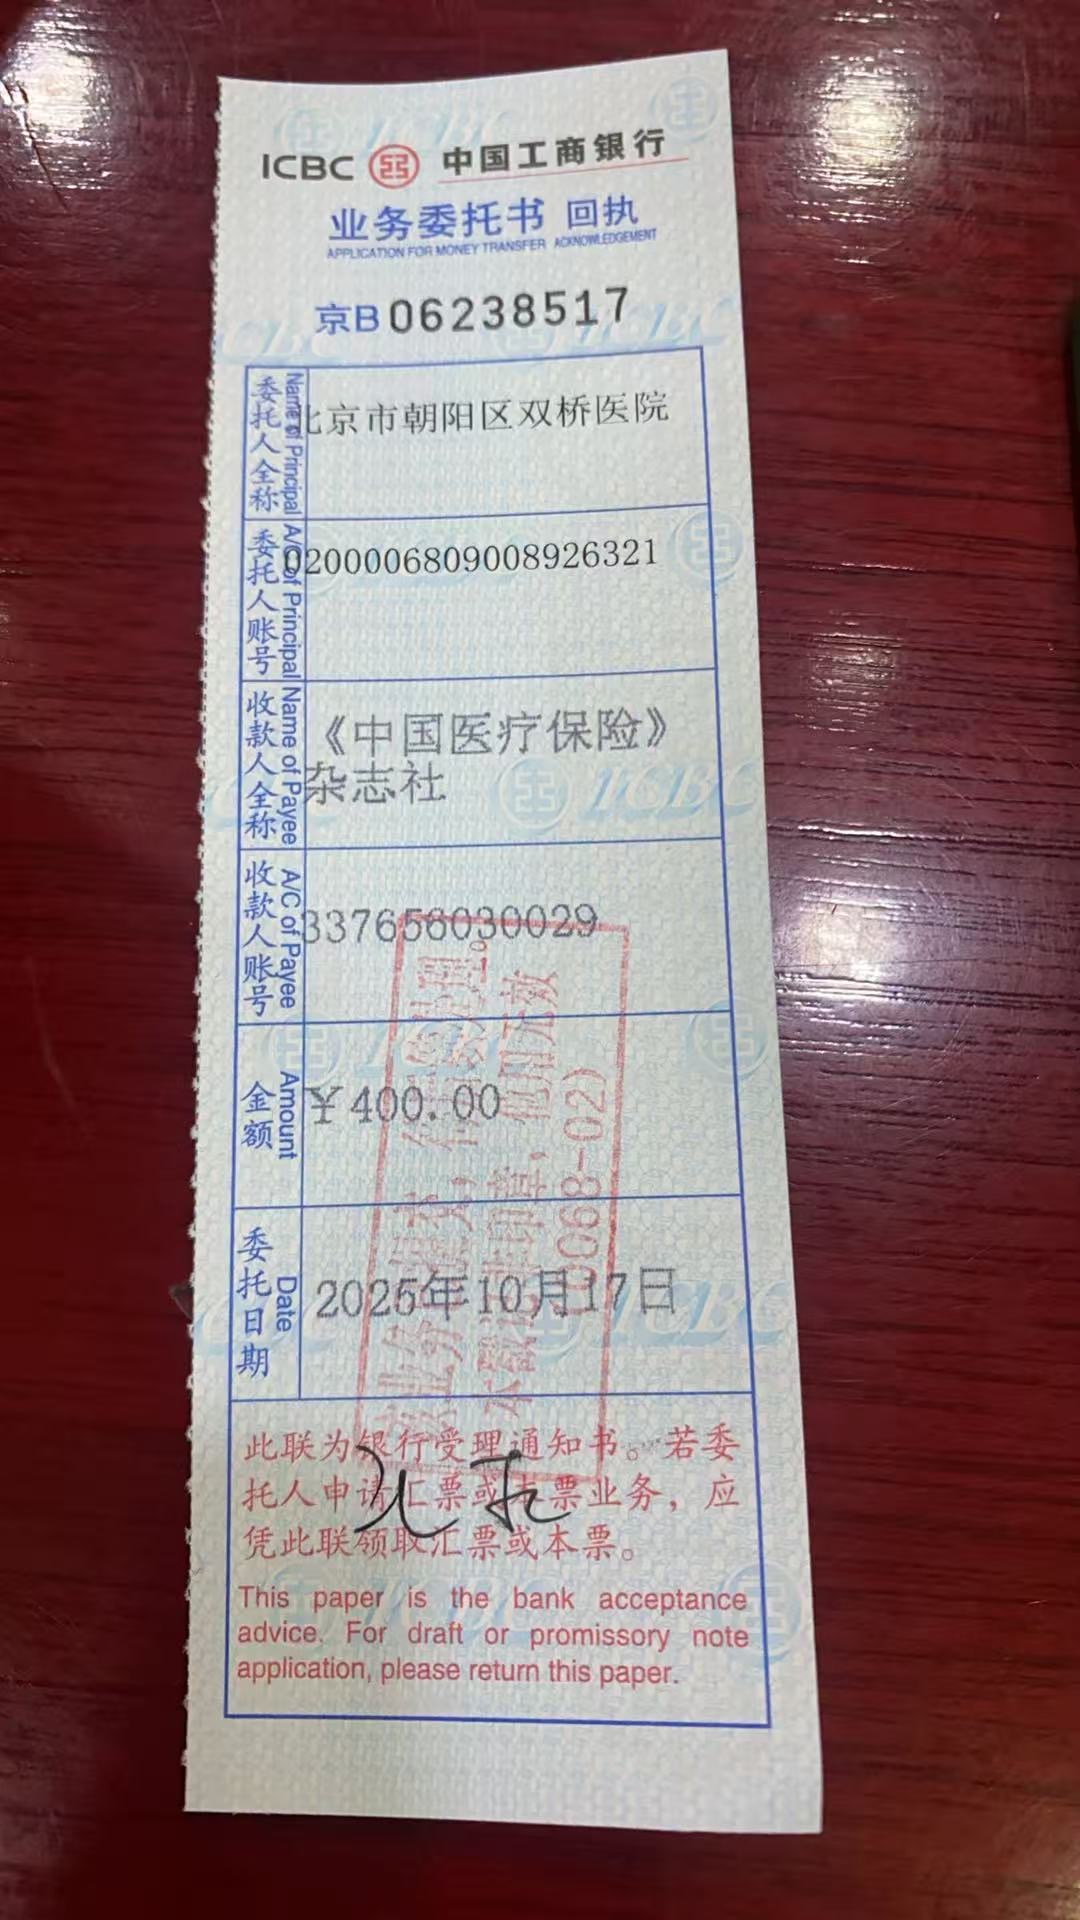 ICBC 中国工商银行
业务委托书 回执
APPLICATION FOR MONEY TRANSFER ACKNOWLEDGEMENT
京B06238517
委托人全称 Name of Principal
北京市朝阳区双桥医院
委托人账号 A/C of Principal
0200006809008926321
收款人全称 Name of Payee
《中国医疗保险》
杂志社
收款人账号 A/C of Payee
337656030029
金额 Amount
¥400.00
委托日期 Date
2025年10月17日
(0068-02)
此联为银行受理通知书。若委
托人申请汇票或本票业务，应
凭此联领取汇票或本票。
This paper is the bank acceptance
advice. For draft or promissory note
application, please return this paper.